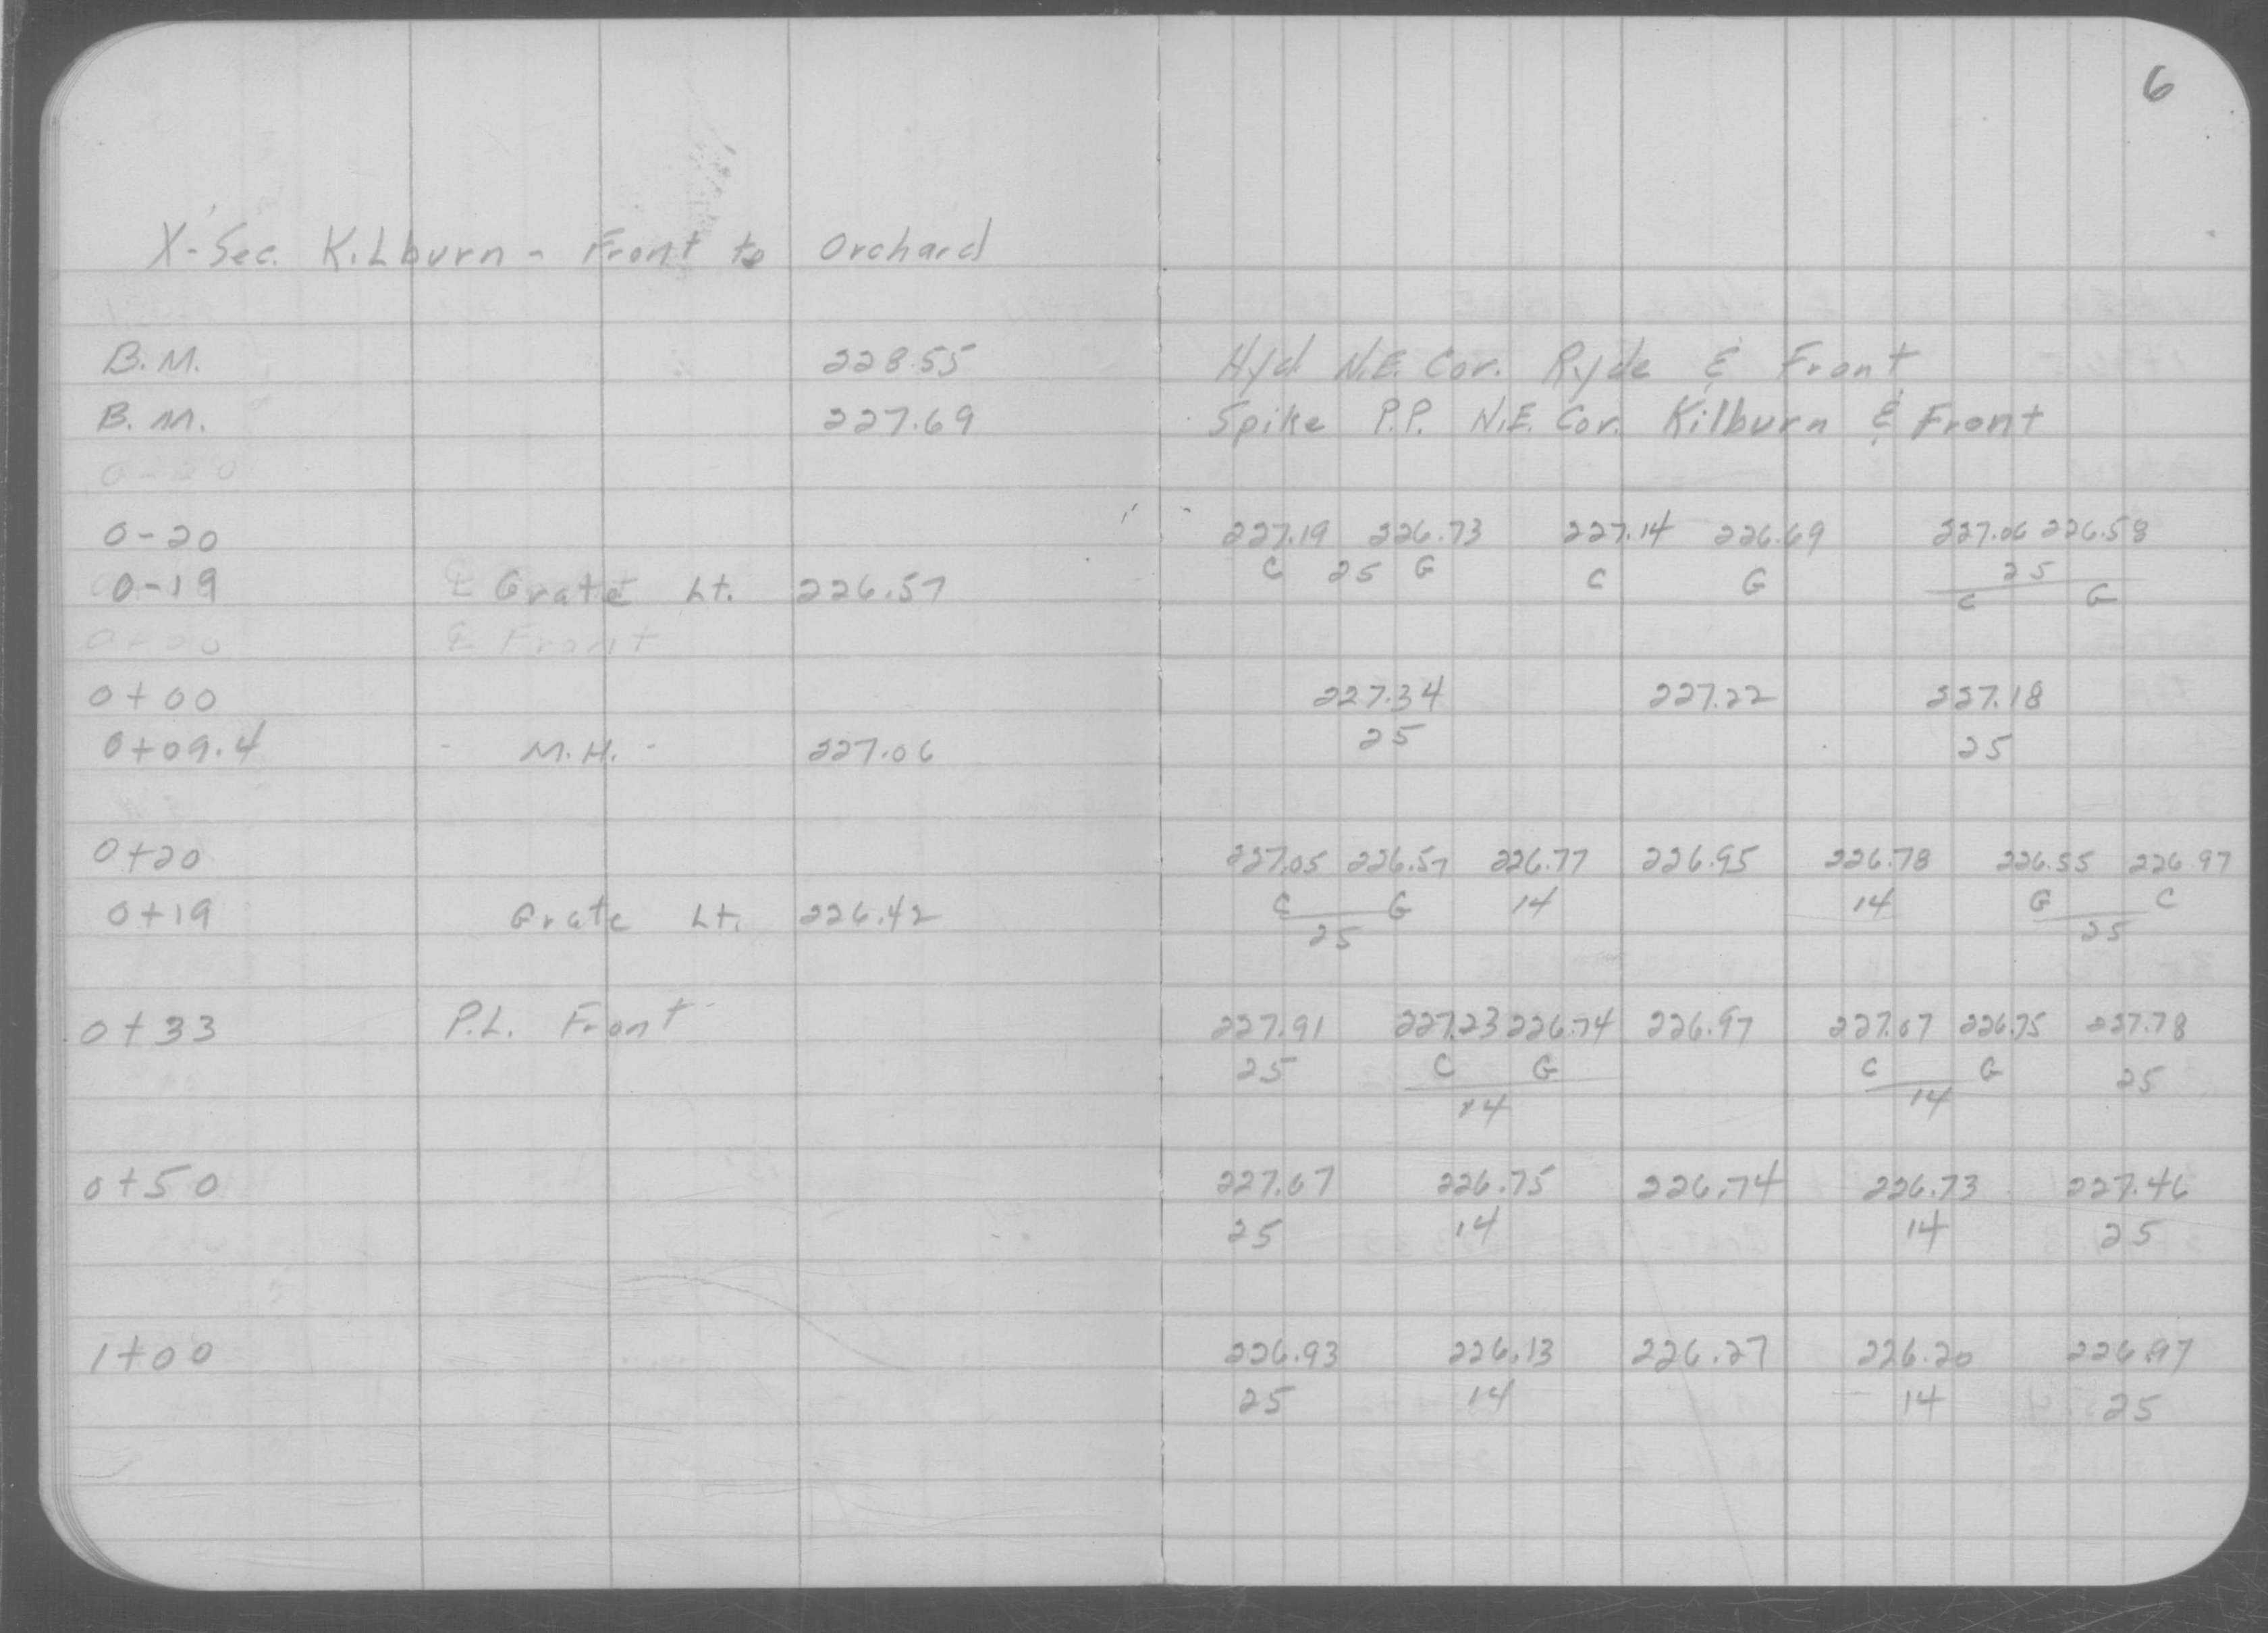 6
X-Sec. Kilburn - Front to Orchard
B.M. 228.55 Hyd. N.E. Cor. Ryde & Front
B.M. 227.69 Spike P.P. N.E. Cor. Kilburn & Front
0-20
0-20 227.19 226.73 227.14 226.69 227.06 226.58
0-19 ℄ Grate Lt. 226.57 C 25 G C G 25
C G
0-00 ℄ Front
0+00 227.34 227.22 227.18
0+09.4 - M.H. - 227.06 25 25
0+20 227.05 226.57 226.77 226.95 226.78 226.55 226.97
0+19 Grate Lt. 226.42 C G 14 14 G C
25 25
0+33 P.L. Front 227.91 227.23 226.74 226.97 227.07 226.75 227.78
25 C G C G 25
14 14
0+50 227.67 226.75 226.74 226.73 227.46
25 14 14 25
1+00 226.93 226.13 226.27 226.20 226.97
25 14 14 25